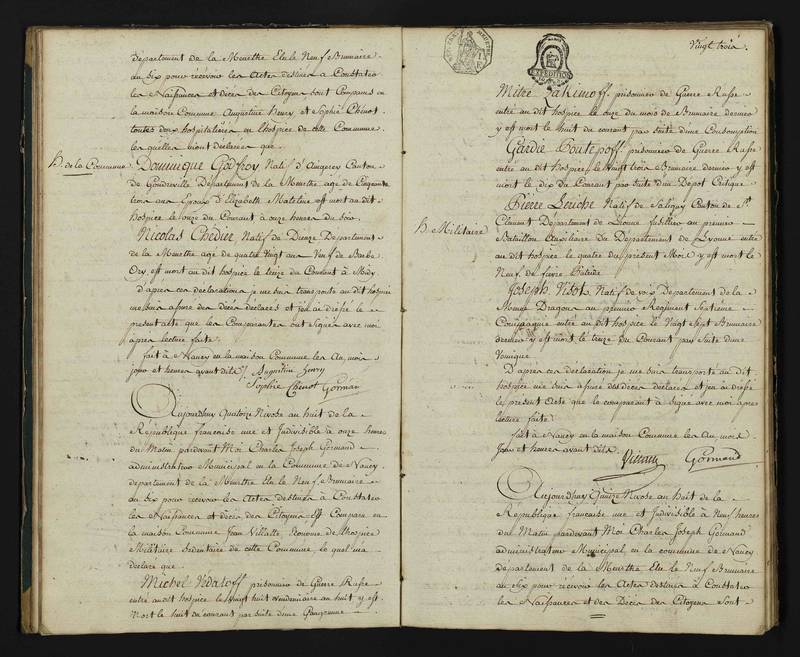 département de la Meurthe Elu le Neuf Brumaire
an Six pour recevoir les Actes destinés a Constater
les Naissances et décès des Citoyens, sont Comparus en
la maison Commune Augustine Henry et Sophie Chenot
toutes deux hospitalières en l'hospice de cette Commune
les quelles m'ont déclaré que
H. de la Commune
Dominique Godfroy Natif d'Angerey Canton
de Gondreville Département de la Meurthe age de Cinquante
trois ans Epoux d'Elizabeth Mateline est mort au dit
Hospice le onze du Courant à onze heures du Soir.
Nicolas Chédier Natif de Dieuze Département
de la Meurthe age de quatre Vingt ans Veuf de Barbe
est mort au dit hospice le treize du Courant à Midy
d'après ces déclarations je me suis transporté au dit hospice
me suis assuré des décès déclarés et j'en ai dressé le
présent acte que les Comparantes ont Signés avec moi
après lecture faite.
fait à Nancy en la maison Commune les An, mois
jour et heures avant dits. Augustine henry
Sophie Chenot Gormand
Aujourdhuy Quatorze Nivose an huit de la
République française une et Indivisible à onze heures
du Matin pardevant Moi Charles Joseph Gormand
administrateur Municipal en la Commune de Nancy
département de la Meurthe Elu le Neuf Brumaire
an Six pour recevoir les Actes destinés à Constater
les Naissances et décès des Citoyens Est Comparu en
la maison Commune Jean Villatte Econome de l'hospice
Militaire Sedentaire de cette Commune le quel m'a
déclaré que
Michel Nidaroff prisonnier de Guerre Russe
entré au dit hospice le Vingt huit Vendemiaire an huit y est
Mort le huit du courant par suite d'une Gangrenne
Vingt trois
EXPEDITION
Mitre Jakimoff prisonnier de Guerre Russe
entré au dit hospice le onze du mois de Brumaire dernier
y est mort le huit du courant par suite d'une Consomption
Gardie Poutepoff prisonnier de Guerre Russe
entré au dit hospice le Vingt trois Brumaire dernier y est
mort le dix du Courant par suite d'un Dépot Critique
H. Militaire
Pierre Leriche Natif de Saligny Canton de St.
Clement Département de Lyonne fusillier au premier
Bataillon Auxiliaire du Département de Lyonne entré
au dit hospice le quatre du présent Mois y est mort le
Neuf de fièvre Putride
Joseph Visot Natif de voix Département de la
Dragons au premier Regiment Septième
Compagnie entré au dit hospice le Vingt Sept Brumaire
dernier y est mort le treize du Courant par Suite d'une
Vomique
D'après ces déclaration je me suis transporté au dit
hospice me suis assuré des décès déclarés et j'en ai dressé
le présent Acte que le comparant à Signé avec moi après
lecture faite
fait à Nancy en la maison Commune les An, mois
Jour et heures avant dits.
Gormand
Aujourdhuy Quinze Nivose an huit de la
République française une et Indivisible à Neuf heures
du Matin pardevant Moi Charles Joseph Gormand
administrateur Municipal en la commune de Nancy
département de la Meurthe Elu le Neuf Brumaire
an Six pour recevoir les Actes destinés à Constater
les Naissances et des Décès des Citoyens Sont